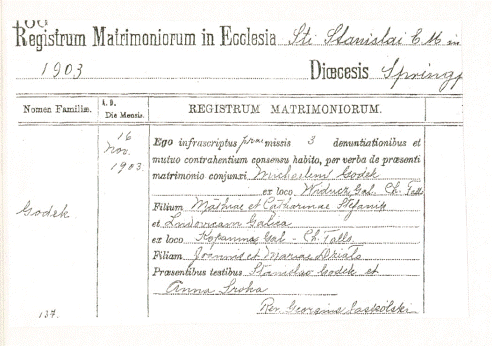 Registrum Matrimoniorum in Ecclesia Sti Stanislai E M in
1903 Diœcesis Springf
Nomen Familiæ. A. D. Die Mensis. REGISTRUM MATRIMONIORUM.
16
Nov.
1903.
Ego infrascriptus præmissis 3 denuntiationibus et
mutuo contrahentium consensu habito, per verba de præsenti
matrimonio conjunxi Michaelem Godek
ex loco Gal. Ch. Falls
Godek
Filium Mathiae et Catharinae Stefanip
et Ludovicam Galica
ex loco Gal - Ch. Falls
Filiam Joannis et Mariae Dzials
Præsentibus testibus Stanislao Godek et
Anna Sroka
137. Rev Georgius Jaskolski